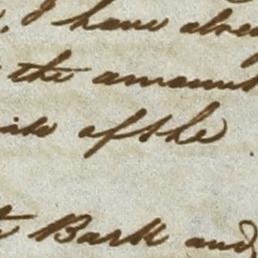 I have alrea
the amount
of the
Bark and